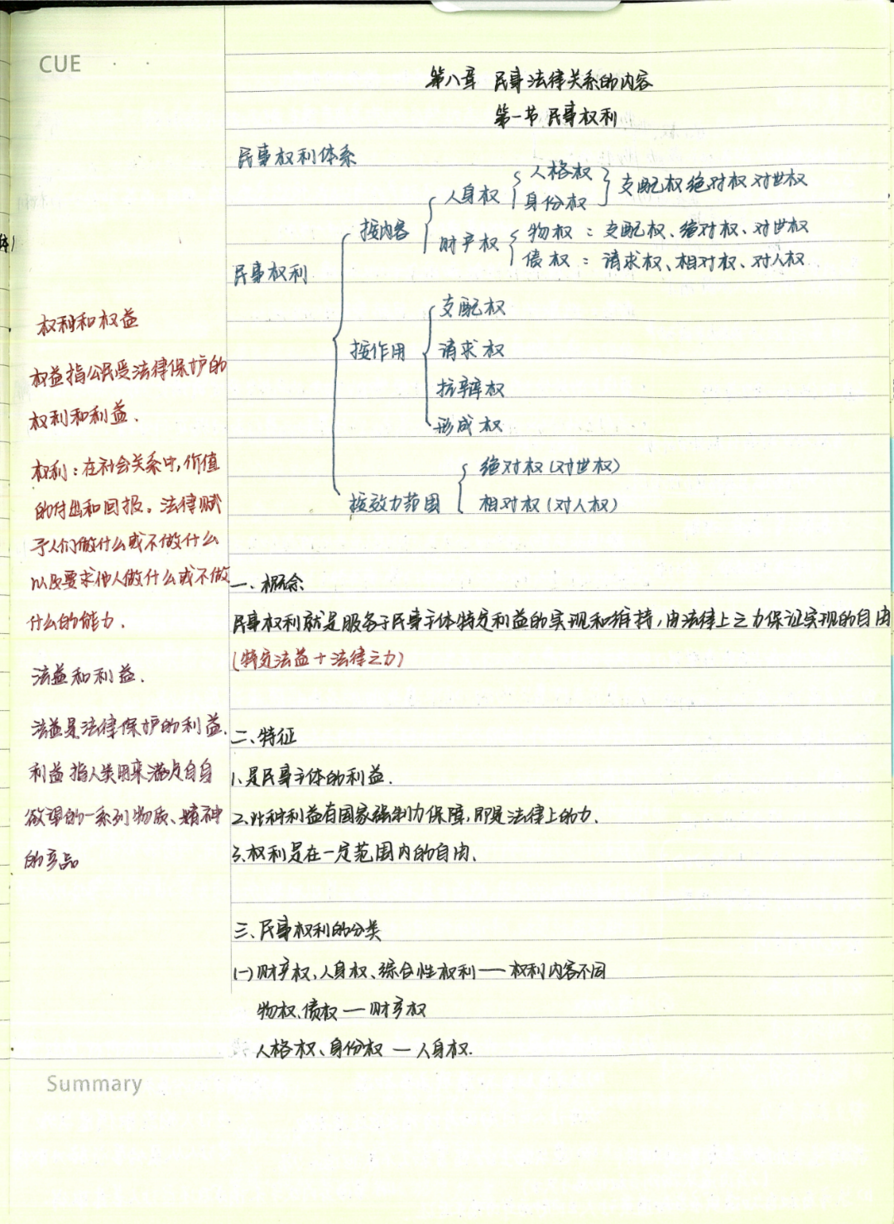 CUE
第八章 民事法律关系的内容
第一节 民事权利
民事权利体系
民事权利
按内容
人身权
人格权
身份权
支配权 绝对权 对世权
财产权
物权：支配权、绝对权、对世权
债权：请求权、相对权、对人权
按作用
支配权
请求权
抗辩权
形成权
按效力范围
绝对权（对世权）
相对权（对人权）
权利和权益
权益指公民受法律保护的
权利和利益.
权利：在社会关系中,价值
的付出和回报。法律赋
予人们做什么或不做什么
以及要求他人做什么或不做
什么的能力.
法益和利益.
法益是法律保护的利益.
利益指人类用来满足自身
欲望的一系列物质、精神
的产品
一、概念
民事权利就是服务于民事主体特定利益的实现和维持,由法律上之力保证实现的自由
(特定法益+法律之力)
二、特征
1.是民事主体的利益.
2.此种利益有国家强制力保障,即是法律上的力.
3.权利是在一定范围内的自由.
三、民事权利的分类
(一)财产权,人身权、综合性权利——权利内容不同
物权、债权—财产权
人格权、身份权—人身权.
Summary